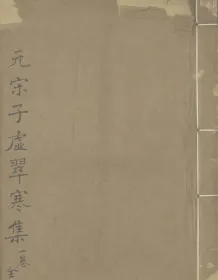 元宋子虛翠寒集一卷全